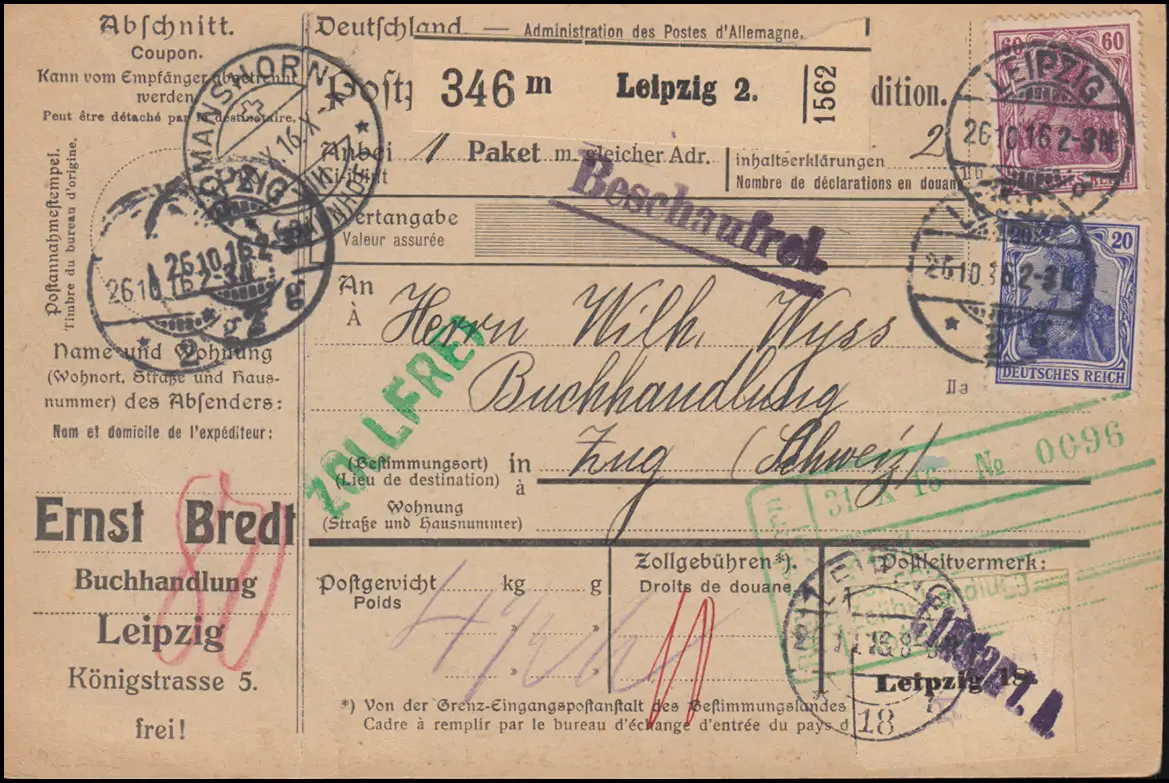 Abschnitt.
Coupon.
Kann vom Empfänger abgetrennt
werden
Peut être détaché par le destinataire.
Postannahmestempel.
Timbre du bureau d'origine.
Name und Wohnung
(Wohnort, Straße und Haus-
nummer) des Absenders:
Nom et domicile de l'expéditeur:
80
Ernst Bredt
Buchhandlung
Leipzig
Königstrasse 5.
frei!
ROMANSHORN
LEIPZIG
26.10.16.2-3N.
26.10.16.2-3N.
* 2 g
Deutschland. — Administration des Postes d'Allemagne.
346 m Leipzig 2. 1562
dition.
Anbei 1 Paket m. gleicher Adr.
inhaltserklärungen 2
Nombre de déclarations en douane
Beschaufrei.
Wertangabe
Valeur assurée
60 60
DEUTSCHES REICH
LEIPZIG
26.10.16.2-3N.
20 20
DEUTSCHES REICH
26.10.16.2-3N.
An
À
Herrn Wilh. Wyss
Buchhandlung
IIa
ZOLLFREI
(Bestimmungsort) in
(Lieu de destination) à
Zug (Schweiz)
Wohnung
(Straße und Hausnummer)
31. X. 16 № 0096
Postgewicht kg g
Poids
Zollgebühren*).
Droits de douane
Postleitvermerk:
Leipzig 18.
18
*) Von der Grenz-Eingangspostanstalt des Bestimmungslandes
Cadre à remplir par le bureau d'échange d'entrée du pays d